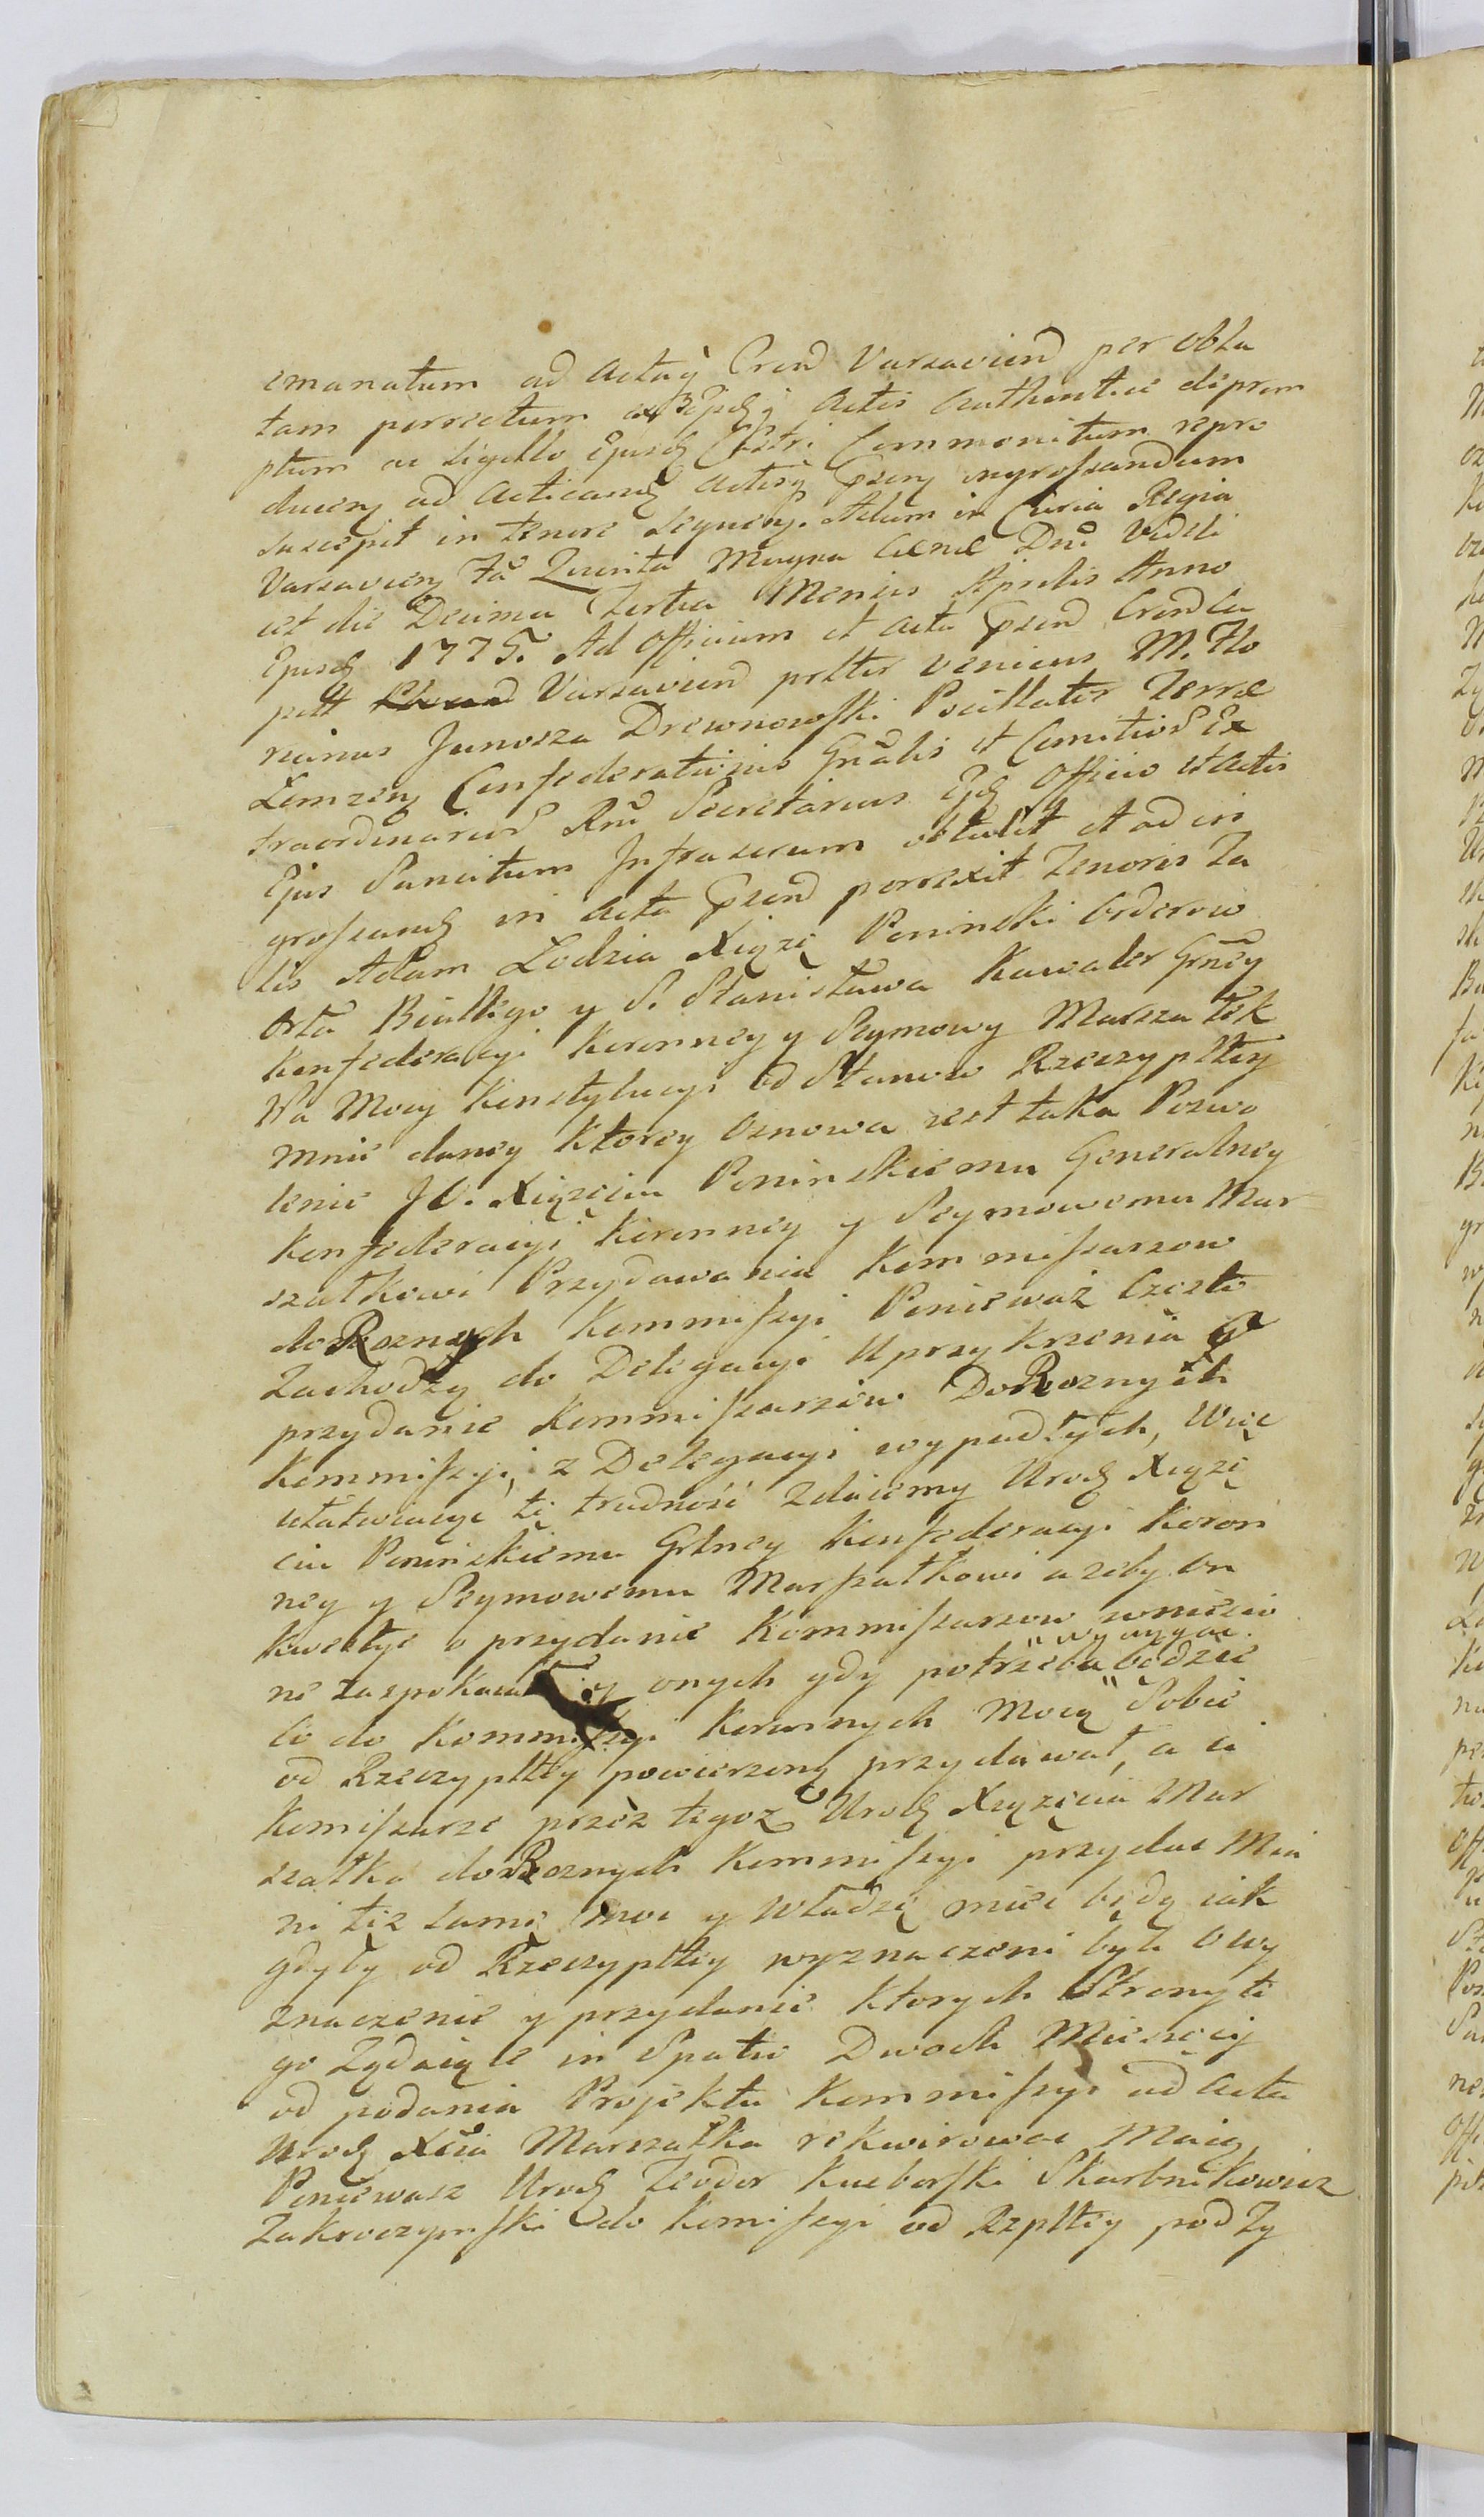 emanatum ad Acta Crend Varsaviend per obla
tam porrectum ex ejsd Actis Authentice deprom
ptum ac Sigillo Ejusd Cstri Communitum repro
ducens ad Acticand Actisq Psens ingrossandum
suscepit in tenore sequens. Actum in Curia Regia
Varsaviens Fa Quinta Magna Cænæ Dni Videli
cet die Decima Tertia Mensis Aprilis Anno
Ejusd 1775. Ad Officium et Acta Psend Crend Ca
pitt Varsaviend prltter veniens M. Flo
rianus Junosza Drewnowski Pocillator Terræ
Łomzens Confederationis Gnalis et Comitior Ex
traordinarior Rni Secretarius Ejd Officio et Actis
Ejus Sancitum Infrascrum obtulit et ad in
grossand in Acta Psend porrexit Tenoris Ta
lis Adam Lodzia Xiąże Poninski Orderow
Orła Białłego y S. Stanisława Kawaler Grney
Konfederacyi Koronney y Seymowy Marszałek
Na Mocy Konstytucyi od Stanow Rzeczypltey
mnie daney Ktorey Osnowa iest taka Pozwo
lenie JO. Xiązęciu Poninskiemu Generalney
Konfederacyi Koronney y Seymowemu Mar
szałkowi Przydawania Kommissarzow
do Roznych Kommissyi Poniewaz Często
Zachodzą do Delegacyi Uprzykrzenia o
przydanie Kommissarzów Do Roznych
Kommissyi, z Delegacyi wypadłych, Więc
ułatwiaiąc tę trudność Zdaiemy Urod Xiązę
ciu Poninskiemu Grlney Konfederacyi Koron
ney y Seymowemu Marszałkowi azeby On
kwestye o przydanie Kommissarzow wniesio
ne zaspokaiał y onych gdy potrzeba wymagac będzie
do Kommissyi Koronnych Mocą Sobie
od Rzeczypltey powierzoną przydawał, a ci
Komissarze przez tegoz Urod Xiązęcia Mar
szałka do Roznych Kommissyi przydac Mia
ni tęz samę moc y Władzę miec będą iak
gdyby od Rzeczypltey wyznaczeni byli O wy
znaczenie y przydanie Ktorych Strony te
go Ządaiące in Spatio Dwoch Miesięcy
od podania Projektu Kommissyi ad Acta
Urod Xcia Marszałka rekwirowac Maią
Poniewasz Urod Teodor Kueborski Skarbnikowicz
Zakroczymski do Komissyi od Rzpltey pod Ty